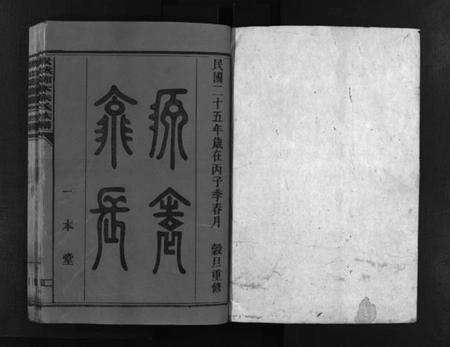 民國二十五年歲在丙子季春月 穀旦重修
源遠
流長
一本堂